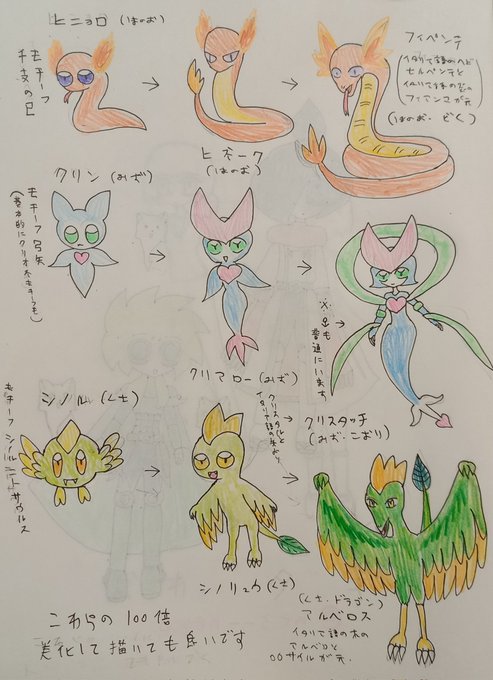 ヒニョロ (ほのお)
モチーフ
干支の巳
ヒギーク
(ほのお)
フィペンテ
イタリア語のヘビ
セルペンテと
イタリア語の炎の
フィアンマが元
(ほのお・どく)
クリン (みず)
モチーフ 弓矢
(基本的にクリオネモチーフも)
クリアロー (みず)
※♂も
普通にいます
クリスタルと
イタリア語の
クリスタッチ
(みず・こおり)
シノル (くさ)
モチーフ シノルニトサウルス
シノリュウ (くさ)
(くさ・ドラゴン)
アルベロス
イタリア語の木の
アルベロと
〇〇サイルが元.
これらの 100倍
美化して描いても良いです